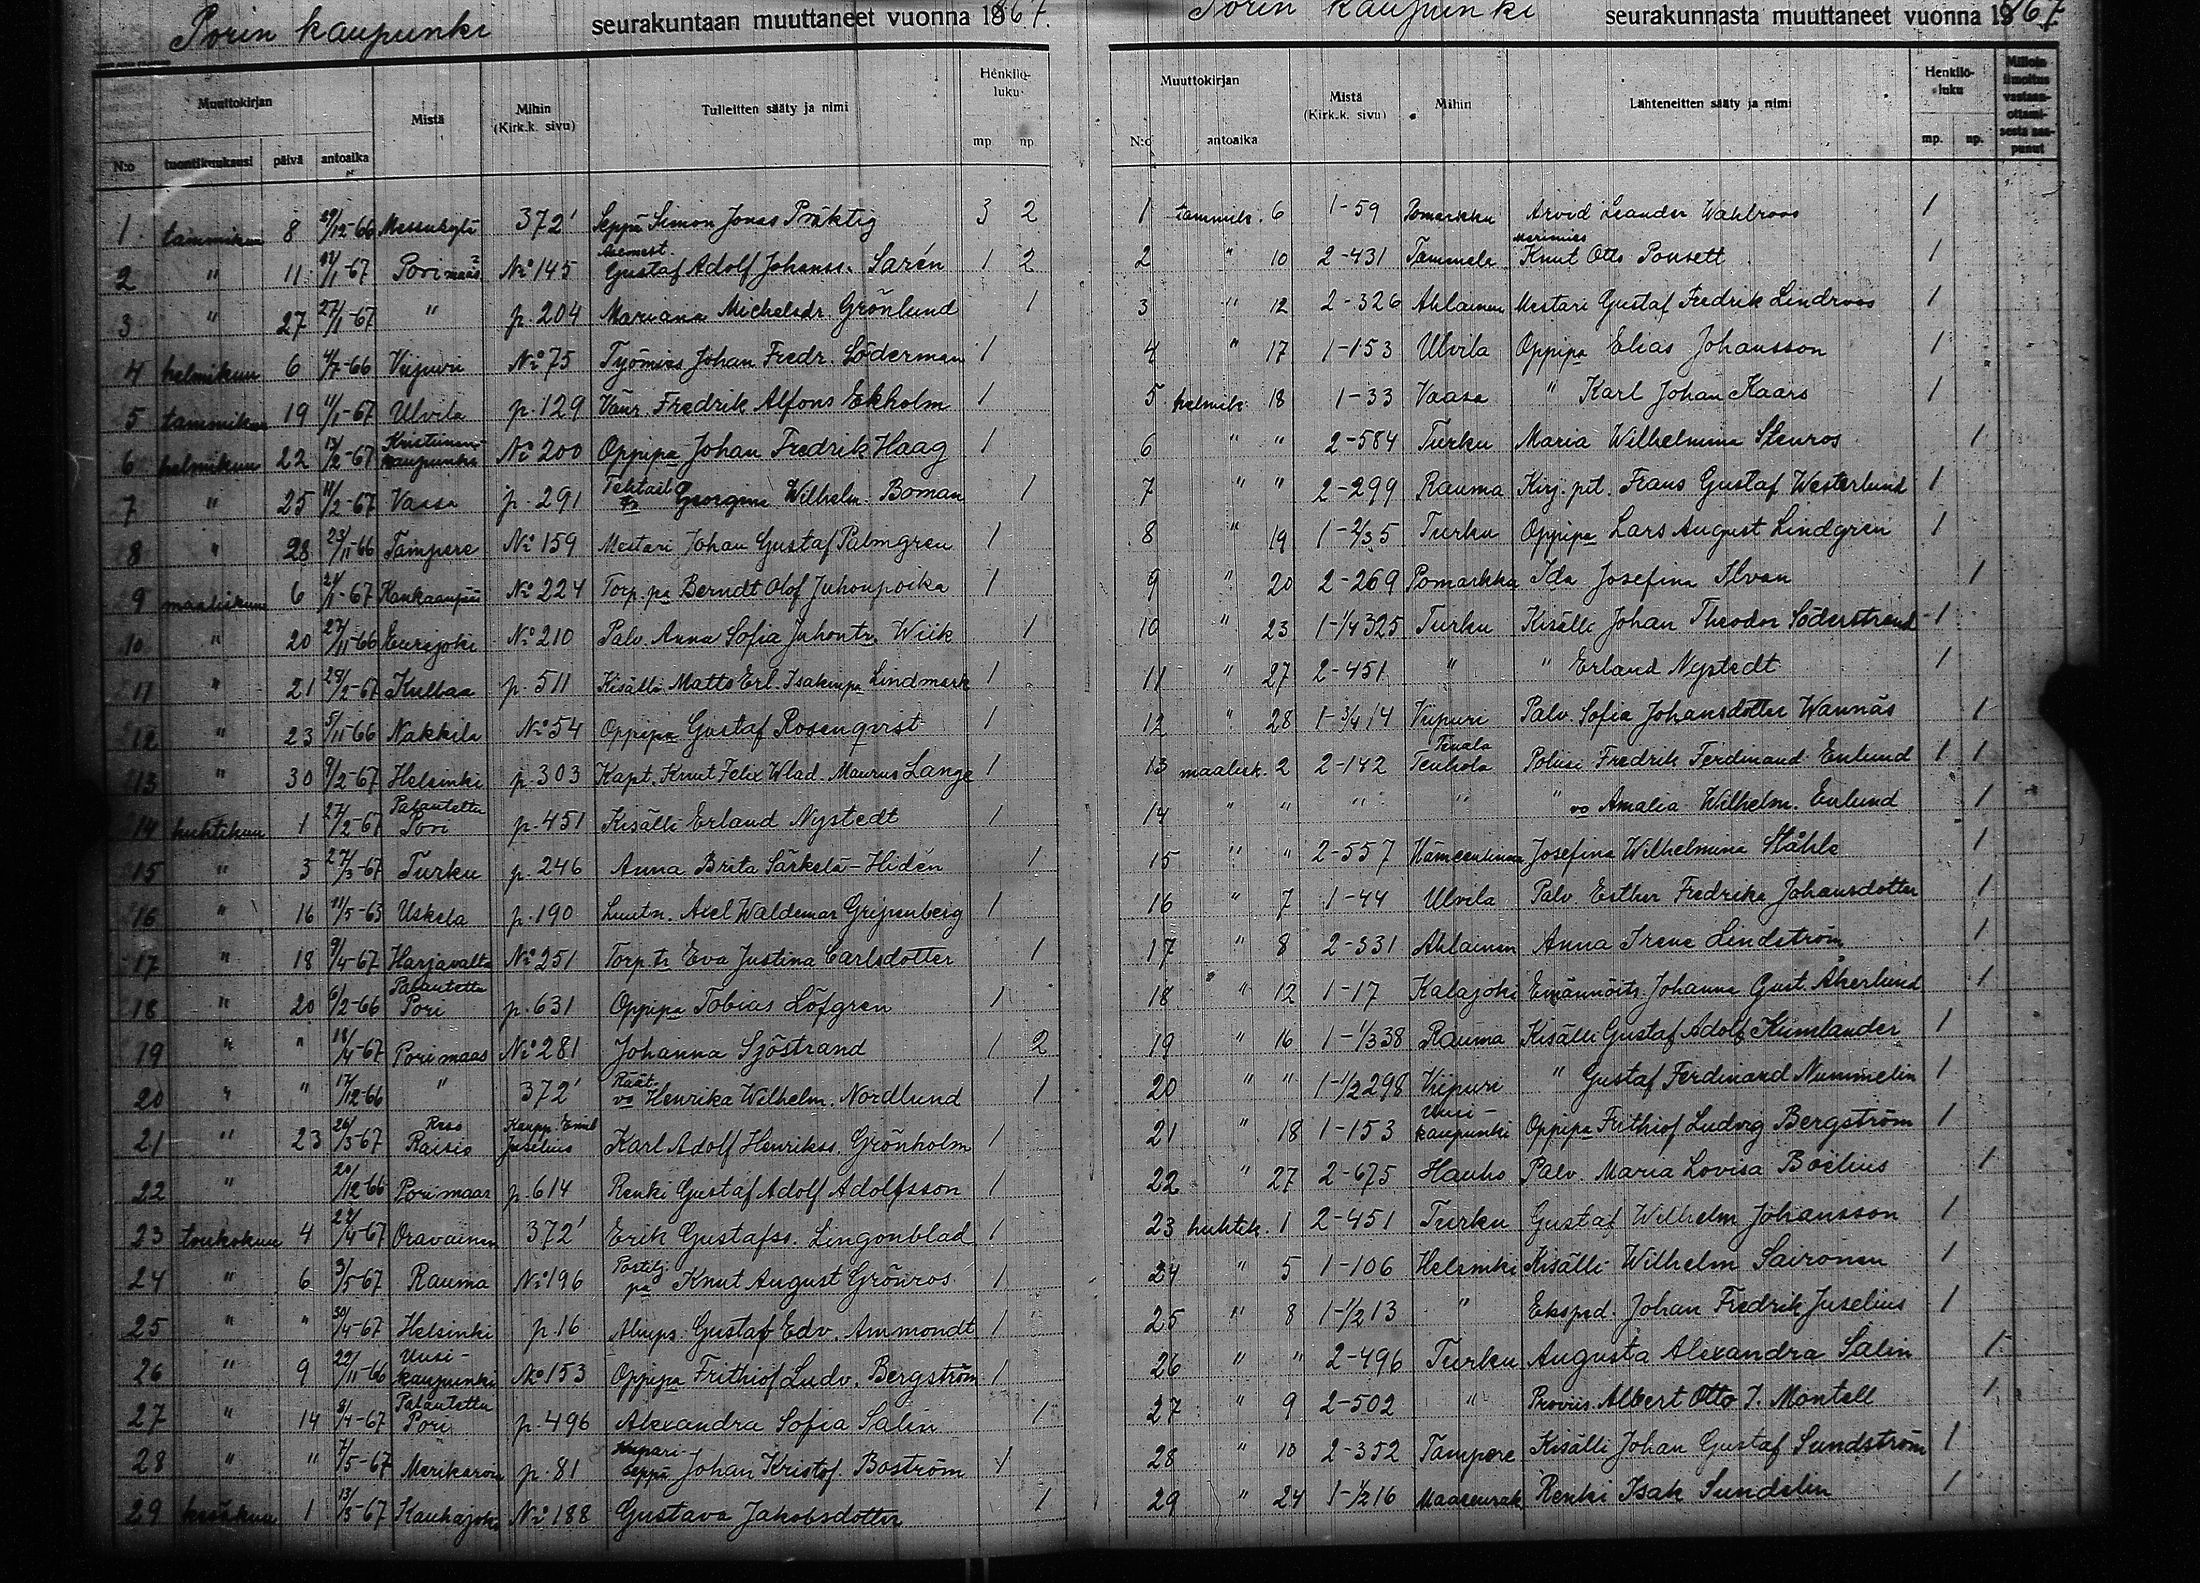 Porin kaupunki seurakuntaan muuttaneet vuonna 1867.
Muuttokirjan Mistä Mihin (Kirk.k. sivu) Tulleitten sääty ja nimi Henkilö-luku
N:o tuontikuukausi päivä antoaika mp np
1 tammikuu 8 29/12-66 Messukylä 372' Seppä Simon Jonas Präktig 3 2
2 " 11 12/1-67 Pori maas Nº 145 Gustaf Adolf Johanss. Sarén 1 2
3 " 27 27/1-67 " p. 204 Mariana Michelsdr Grönlund 1
4 helmikuu 6 4/7-66 Viipuri Nº 75 Työmies Johan Fredr. Söderman 1
5 tammikuu 19 11/1-67 Ulvila p. 129 Vänr. Fredrik Alfons Ekholm 1
6 helmikuu 22 13/2-67 Kristiinan-kaupunki Nº 200 Oppipa Johan Fredrik Haag 1
7 " 25 11/2-67 Vaasa p. 291 Georgina Wilhelm. Boman 1
8 " 28 23/11-66 Tampere Nº 159 Mestari Johan Gustaf Palmgren 1
9 maaliskuu 6 21/1-67 Kankaanpää Nº 224 Torp. pa Berndt Olof Juhonpoika 1
10 " 20 27/11-66 Eurajoki Nº 210 Palv. Anna Sofia Juhontr. Wiik 1
11 " 21 28/2-67 Kullaa p. 511 Kisälli Matts Erl. Isakinpa Lindmark 1
12 " 23 5/11-66 Nakkila Nº 54 Oppipa Gustaf Rosenqvist 1
13 " 30 9/2-67 Helsinki p. 303 Kapt. Knut Felix Wlad. Maurus Lange 1
14 huhtikuu 1 27/2-67 Palautettu Pori p. 451 Kisälli Erland Nystedt 1
15 " 3 27/3-67 Turku p. 246 Anna Brita Särkelä-Hidén 1
16 " 16 11/5-63 Uskela p. 190 Luutn. Axel Waldemar Gripenberg 1
17 " 18 9/4-67 Harjavalta Nº 251 Torp. tr Eva Justina Carlsdotter 1
18 " 20 6/2-66 Palautettu Pori p. 631 Oppipa Tobias Löfgren 1
19 " " 18/4-67 Pori maas Nº 281 Johanna Sjöstrand 1 2
20 " " 17/12-66 " 372' Räät. vo Henrika Wilhelm. Nordlund 1
21 " 23 26/3-67 Raisio Kaupp. Emil Juselius Karl Adolf Henrikss. Grönholm 1
22 " 20/12-66 Pori maas p. 614 Renki Gustaf Adolf Adolfsson 1
23 toukokuu 4 22/4-67 Oravainen 372' Erik Gustafss. Lingonblad 1
24 " 6 3/5-67 Rauma Nº 196 pa Knut August Grönros 1
25 " " 30/4-67 Helsinki p. 16 Gustaf Edv. Ammondt 1
26 " 9 22/11-66 Uusi-kaupunki Nº 153 Oppipa Frithiof Ludv. Bergström 1
27 " 14 8/4-67 Palautettu Pori p. 496 Alexandra Sofia Salin 1
28 " " 7/5-67 Merikarvia p. 81 Kupari-seppä Johan Kristof. Boström 1
29 kesäkuu 1 13/5-67 Kauhajoki Nº 188 Gustava Jakobsdotter 1
Porin kaupunki seurakunnasta muuttaneet vuonna 1867
Muuttokirjan Mistä (Kirk.k. sivu) Mihin Lähteneitten sääty ja nimi Henkilö-luku Milloin ilmoitus vastaan-ottami-sesta saa-punut
N:o antoaika mp. np.
1 tammik. 6 1-59 Pomarkku Arvid Leander Wahlroos 1
2 " 10 2-431 Tammela Merimies Knut Otto Ponsett 1
3 " 12 2-326 Ahlainen Mestari Gustaf Fredrik Lindroos 1
4 " 17 1-153 Ulvila Oppipa Elias Johansson 1
5 helmik. 18 1-33 Vaasa " Karl Johan Kaars 1
6 " " 2-584 Turku Maria Wilhelmina Stenros 1
7 " " 2-299 Rauma Kirj. pit. Frans Gustaf Westerlund 1
8 " 19 1-2/35 Turku Oppipa Lars August Lindgren 1
9 " 20 2-269 Pomarkku Ida Josefina Ilvan 1
10 " 23 1-1/4 325 Turku Kisälli Johan Theodor Söderstrand 1
11 " 27 2-451 " " Erland Nystedt 1
12 " 28 1-3/4 14 Viipuri Palv. Sofia Johansdotter Wannäs 1
13 maalisk. 2 2-142 Tenala Tenhola Poliisi Fredrik Ferdinand Enlund 1 1
14 " " " " " vo Amalia Wilhelm. Enlund 1
15 " " 2-557 Hämeenlinna Josefina Wilhelmina Ståhle 1
16 " 7 1-44 Ulvila Palv. Esther Fredrika Johansdotter 1
17 " 8 2-331 Ahlainen Anna Irene Lindström 1
18 " 12 1-17 Kalajoki Emännöits. Johanna Gust. Åkerlund 1
19 " 16 1-1/3 38 Rauma Kisälli Gustaf Adolf Kumlander 1
20 " " 1-1/2 298 Viipuri " Gustaf Ferdinand Nummelin 1
21 " 18 1-153 Uusi-kaupunki Oppipa Frithiof Ludvig Bergström 1
22 " 27 2-675 Hauho Palv. Maria Lovisa Boëlius 1
23 huhtik. 1 2-451 Turku Gustaf Wilhelm Johansson 1
24 " 5 1-106 Helsinki Kisälli Wilhelm Saironen 1
25 " 8 1-1/2 13 " Eksped. Johan Fredrik Juselius 1
26 " " 2-496 Turku Augusta Alexandra Salin 1
27 " 9 2-502 " Proviis. Albert Otto I. Montell 1
28 " 10 2-352 Tampere Kisälli Johan Gustaf Sundström 1
29 " 24 1-1/2 16 Maaseurak. Renki Isak Sundelin 1